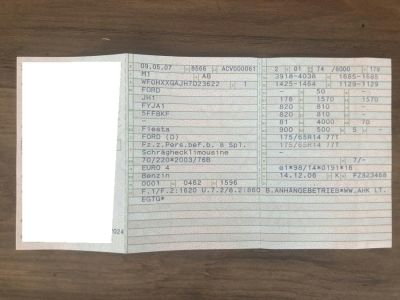 09.05.07 8566 ACV000061 2 01 74 /6000 178
M1 AB 3918-4038 1685-1685
WF0HXXGAJH7D23622 1 1425-1464 1129-1129
FORD - 50 -
JH1 178 1570 1570
FYJA1 820 810 -
5FFBKF 820 810 -
81 4000 70
Fiesta 900 500 S -
FORD (D) 175/65R14 77T
Fz.z.Pers.bef.b. 8 Spl. 175/65R14 77T
Schräghecklimousine -
70/220*2003/76B - 7/-
EURO 4 e1*98/14*0191*16
Benzin 14.12.06 K FZ823468
0001 0462 1596
F.1/F.2:1620 U.7.2/8.2:860 B.ANHÄNGEBETRIEB*WW.AHK LT.
EGTG*
2024